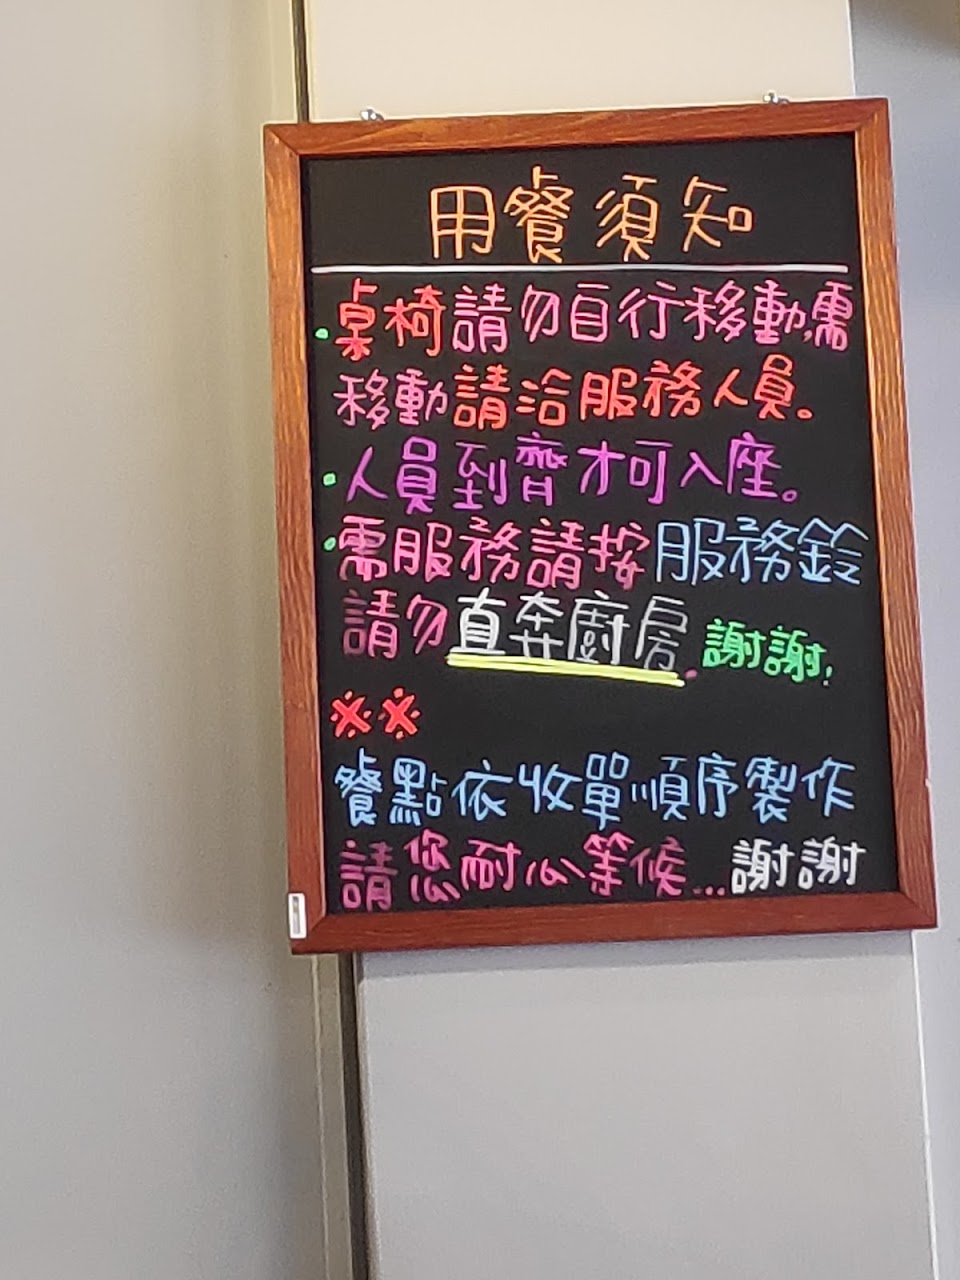 用餐須知
·桌椅請勿自行移動,需
移動請洽服務人員。
·人員到齊才可入座。
·需服務請按服務鈴
請勿直奔廚房.謝謝!
※※
餐點依收單順序製作
請您耐心等候...謝謝